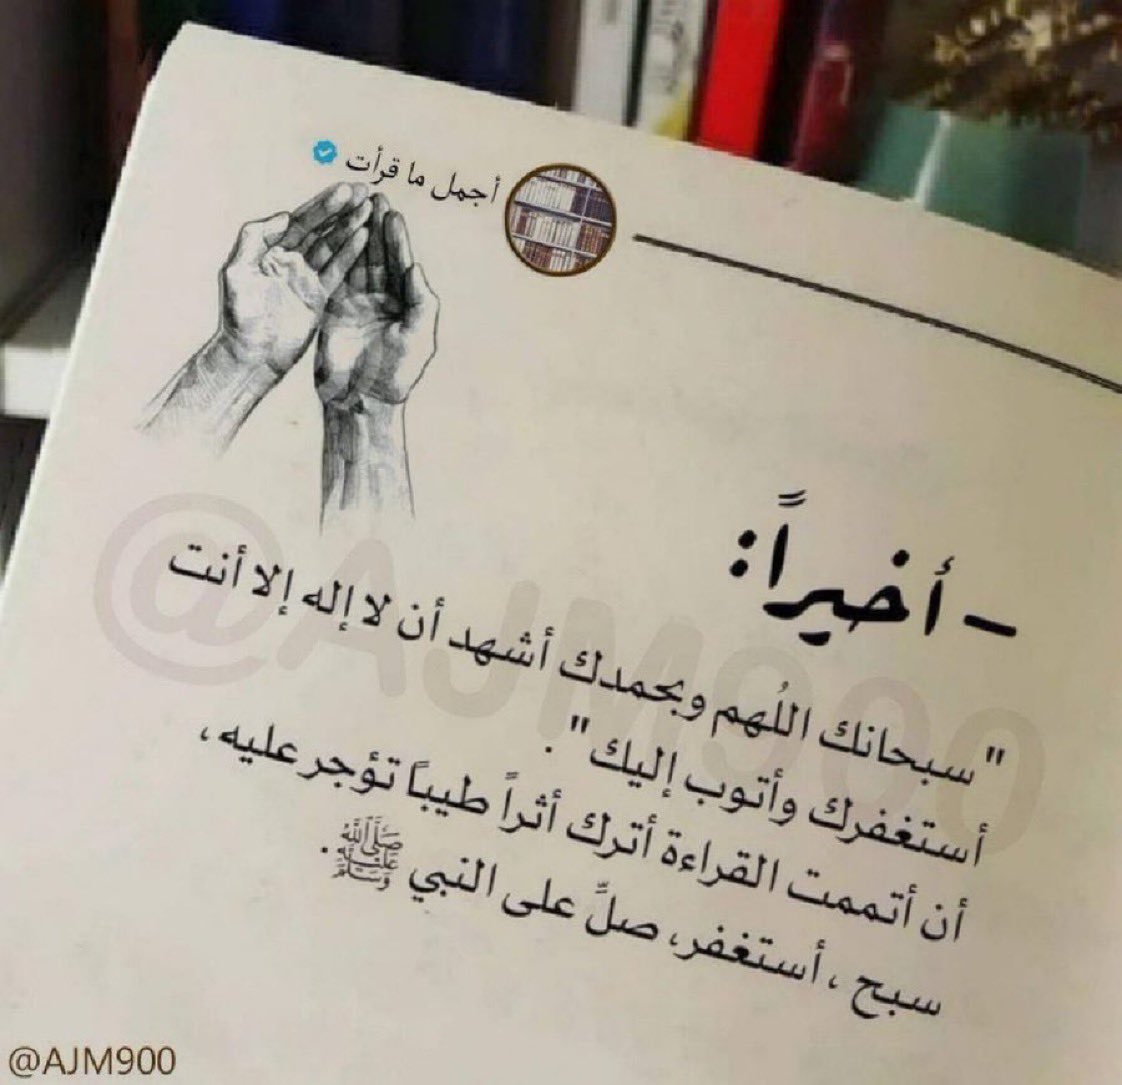 أجمل ما قرأت
- أخيراً:
"سبحانك اللُهم وبحمدك أشهد أن لا إله إلا أنت
أستغفرك وأتوب إليك".
أن أتممت القراءة أترك أثراً طيباً تؤجر عليه،
سبح ، أستغفر، صلِّ على النبي ﷺ.
@AJM900
@AJM900